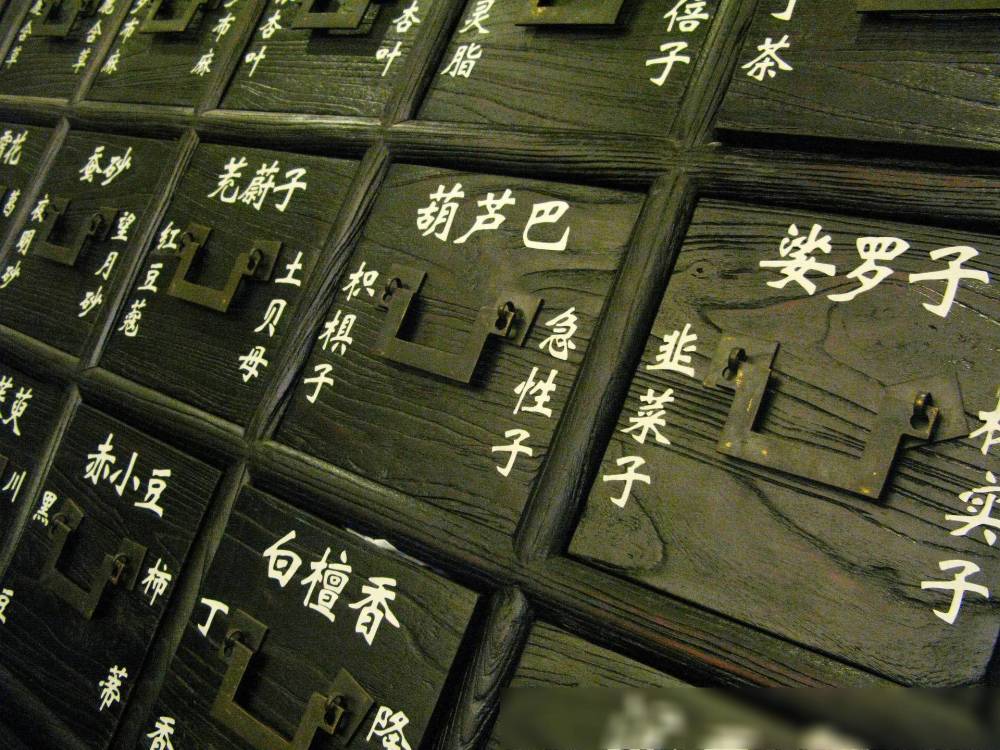 合草
布麻
布麻
杏叶
杏叶
灵脂
倍子
茶
蚕砂
夜明砂
望月砂
茺蔚子
红豆蔻
土贝母
葫芦巴
枳椇子
急性子
娑罗子
韭菜子
实子
赤小豆
黑
豆
柿蒂
川
白檀香
丁香
降